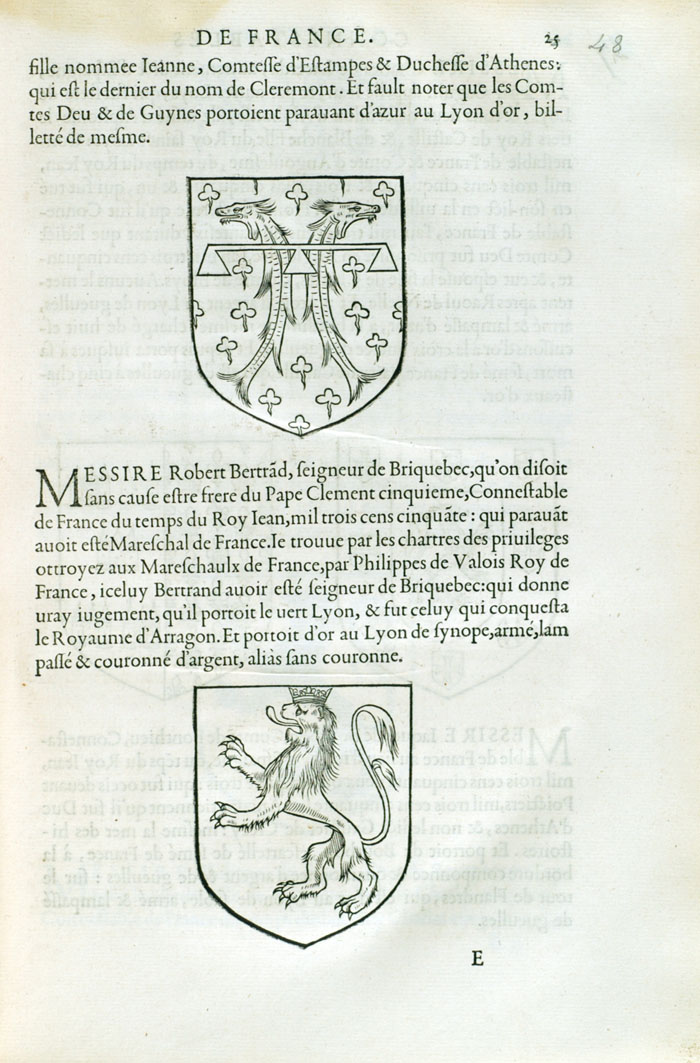 DE FRANCE. 25 48
fille nommee Ieanne, Comtesse d'Estampes & Duchesse d'Athenes:
qui est le dernier du nom de Cleremont. Et fault noter que les Com-
tes Deu & de Guynes portoient parauant d'azur au Lyon d'or, bil-
letté de mesme.
MESSIRE Robert Bertrãd, seigneur de Briquebec, qu'on disoit
sans cause estre frere du Pape Clement cinquieme, Connestable
de France du temps du Roy Iean, mil trois cens cinquãte : qui parauãt
auoit esté Mareschal de France. Ie trouue par les chartres des priuileges
ottroyez aux Mareschaulx de France, par Philippes de Valois Roy de
France, iceluy Bertrand auoir esté seigneur de Briquebec: qui donne
uray iugement, qu'il portoit le uert Lyon, & fut celuy qui conquesta
le Royaume d'Arragon. Et portoit d'or au Lyon de synope, armé, lam
passé & couronné d'argent, aliàs sans couronne.
E